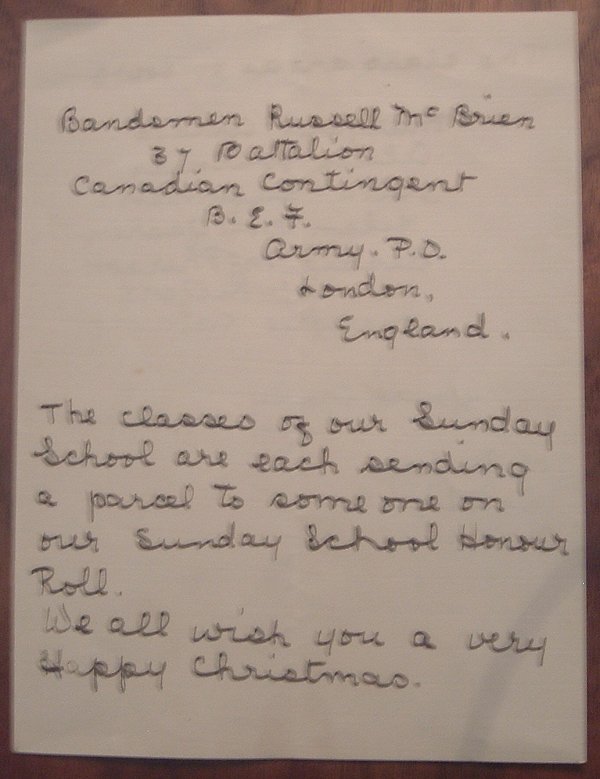 Bandsmen Russell Mc Brien
37 Battalion
Canadian Contingent
B. E. F.
Army. P.O.
London,
England.
The classes of our Sunday
School are each sending
a parcel to some one on
our Sunday School Honour
Roll.
We all wish you a very
Happy Christmas.